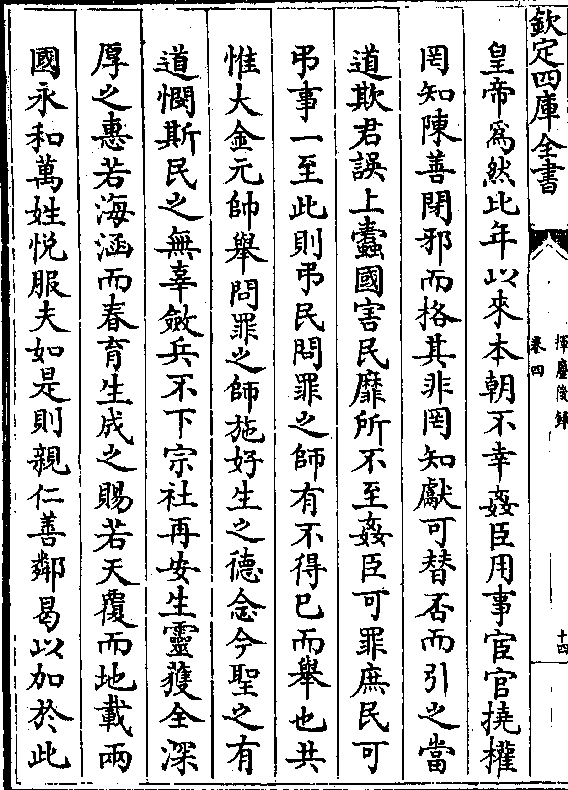 欽定四庫全書
揮麈後録
卷四
十四
皇帝為然比年以來本朝不幸姦臣用事宦官撓權
罔知陳善閉邪而格其非罔知獻可替否而引之當
道欺君誤上蠹國害民靡所不至姦臣可罪庶民可
弔事一至此則弔民問罪之師有不得已而舉也共
惟大金元帥舉問罪之師施好生之德念今聖之有
道憫斯民之無辜斂兵不下宗社再安生靈獲全深
厚之惠若海涵而春育生成之賜若天覆而地載兩
國永和萬姓悦服夫如是則親仁善鄰曷以加於此